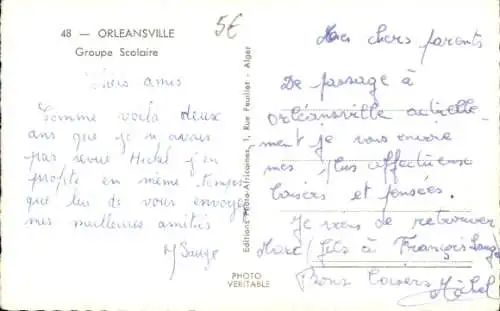 48 — ORLEANSVILLE
Groupe Scolaire
5€
Chers amis
Comme voilà deux
ans que je n'avais
pas revue Michel j'en
profite en même temps
que lui de vous envoyer
mes meilleures amitiés
M Sauge
Editions Photo-Africaines, 1, Rue Feuillet - Alger
PHOTO
VERITABLE
Mes chers parents
De passage à
Orléansville actuelle-
ment je vous envoie
mes plus affectueuse
baisers et pensées.
Je viens de retrouver
Marc (fils à François Sauge
Bons baisers
Michel